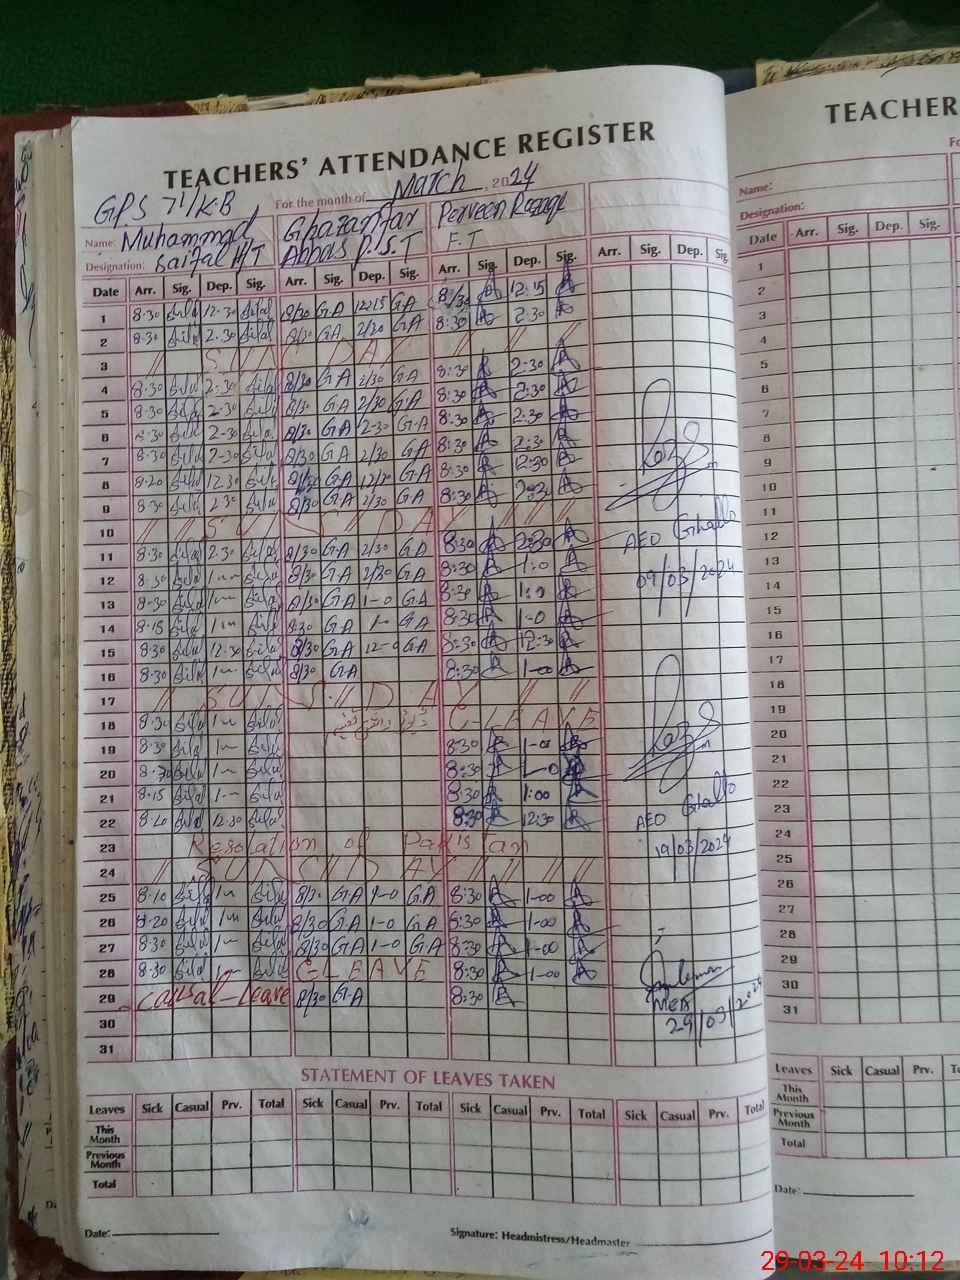 TEACHERS' ATTENDANCE REGISTER
GPS 71/K.B For the month of March, 2024
Name: Muhammad Ghazanfar Perveen
Designation: H/T Abbas P.S.T F.T
Date Arr. Sig. Dep. Sig. Arr. Sig. Dep. Sig. Arr. Sig. Dep. Sig. Arr. Sig. Dep. Sig.
1 8-30 12-30 8/30 G.A 12:15 G.A 8/30 12:15
2 8-30 2-30 8/30 G.A 2/30 G.A 8:30 2:30
3 // SUN // DAY // //
4 8-30 2-30 8/30 G.A 2/30 G.A 8:30 2:30
5 8-30 2-30 8/30 G.A 2/30 G.A 8:30 2:30
6 8-30 2-30 8/30 G.A 2-30 G.A 8:30 2:30
7 8-30 2-30 8/30 G.A 2/30 G.A 8:30 2:30
8 8-20 12-30 8/30 G.A 12/30 G.A 8:30 12:30
9 8-30 2-30 8/30 G.A 2/30 G.A 8:30
10 // SUN // DAY // //
11 8-30 2-30 8/30 G.A 2/30 G.A 8:30 2:30
12 8-30 1- 8/30 G.A 2/30 G.A 8:30 1:0
13 8-30 1- 8/30 G.A 1-0 G.A 8:30 1:0
14 8-15 1- 8:30 G.A 1- G.A 8:30 1-0
15 8-30 12-30 8/30 G.A 12-0 G.A 8:30 12:30
16 8-30 1- 8/30 G.A 8:30 1-00
17 // SUN // DAY // //
18 8-30 1- C-LEAVE
19 8-30 1- 8:30 1-00
20 8-30 1- 8:30 1-0
21 8-15 1- 8:30 1:00
22 8-20 12-30 8:30 12:30
23 Resolation of Pakistan
24 // SUN // DAY // //
25 8-10 1- 8/30 G.A 1-0 G.A 8:30 1-00
26 8-20 1- 8/30 G.A 1-0 G.A 8:30 1-00
27 8-30 1- 8/30 G.A 1-0 G.A 8:30 1-00
28 8-30 1- C-LEAVE 8:30 1-00
29 Causal-leave 8/30 G.A 8:30
30
31
AEO
09/03/2024
AEO
19/03/2024
MEA
29/03/2024
STATEMENT OF LEAVES TAKEN
Leaves Sick Casual Prv. Total Sick Casual Prv. Total Sick Casual Prv. Total Sick Casual Prv. Total
This Month
Previous Month
Total
Date:
Signature: Headmistress/Headmaster
TEACHER
Name:
Designation:
Date Arr. Sig. Dep. Sig.
1
2
3
4
5
6
7
8
9
10
11
12
13
14
15
16
17
18
19
20
21
22
23
24
25
26
27
28
29
30
31
Leaves Sick Casual Prv.
This Month
Previous Month
Total
Date:
29-03-24 10:12